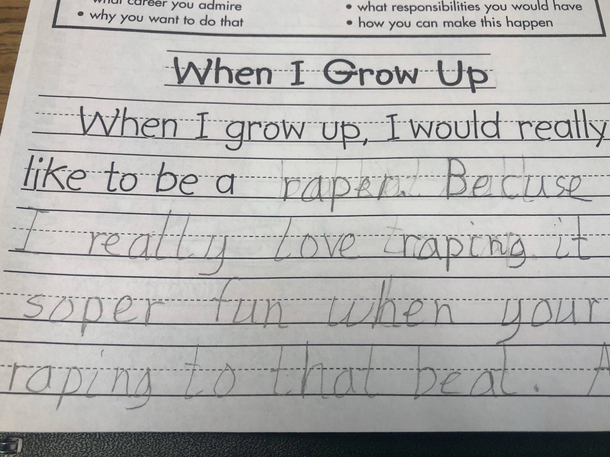 what career you admire
• why you want to do that
• what responsibilities you would have
• how you can make this happen
When I Grow Up
When I grow up, I would really
like to be a raper. Becuse
I really love raping it
soper fun when your
raping to that beat. A